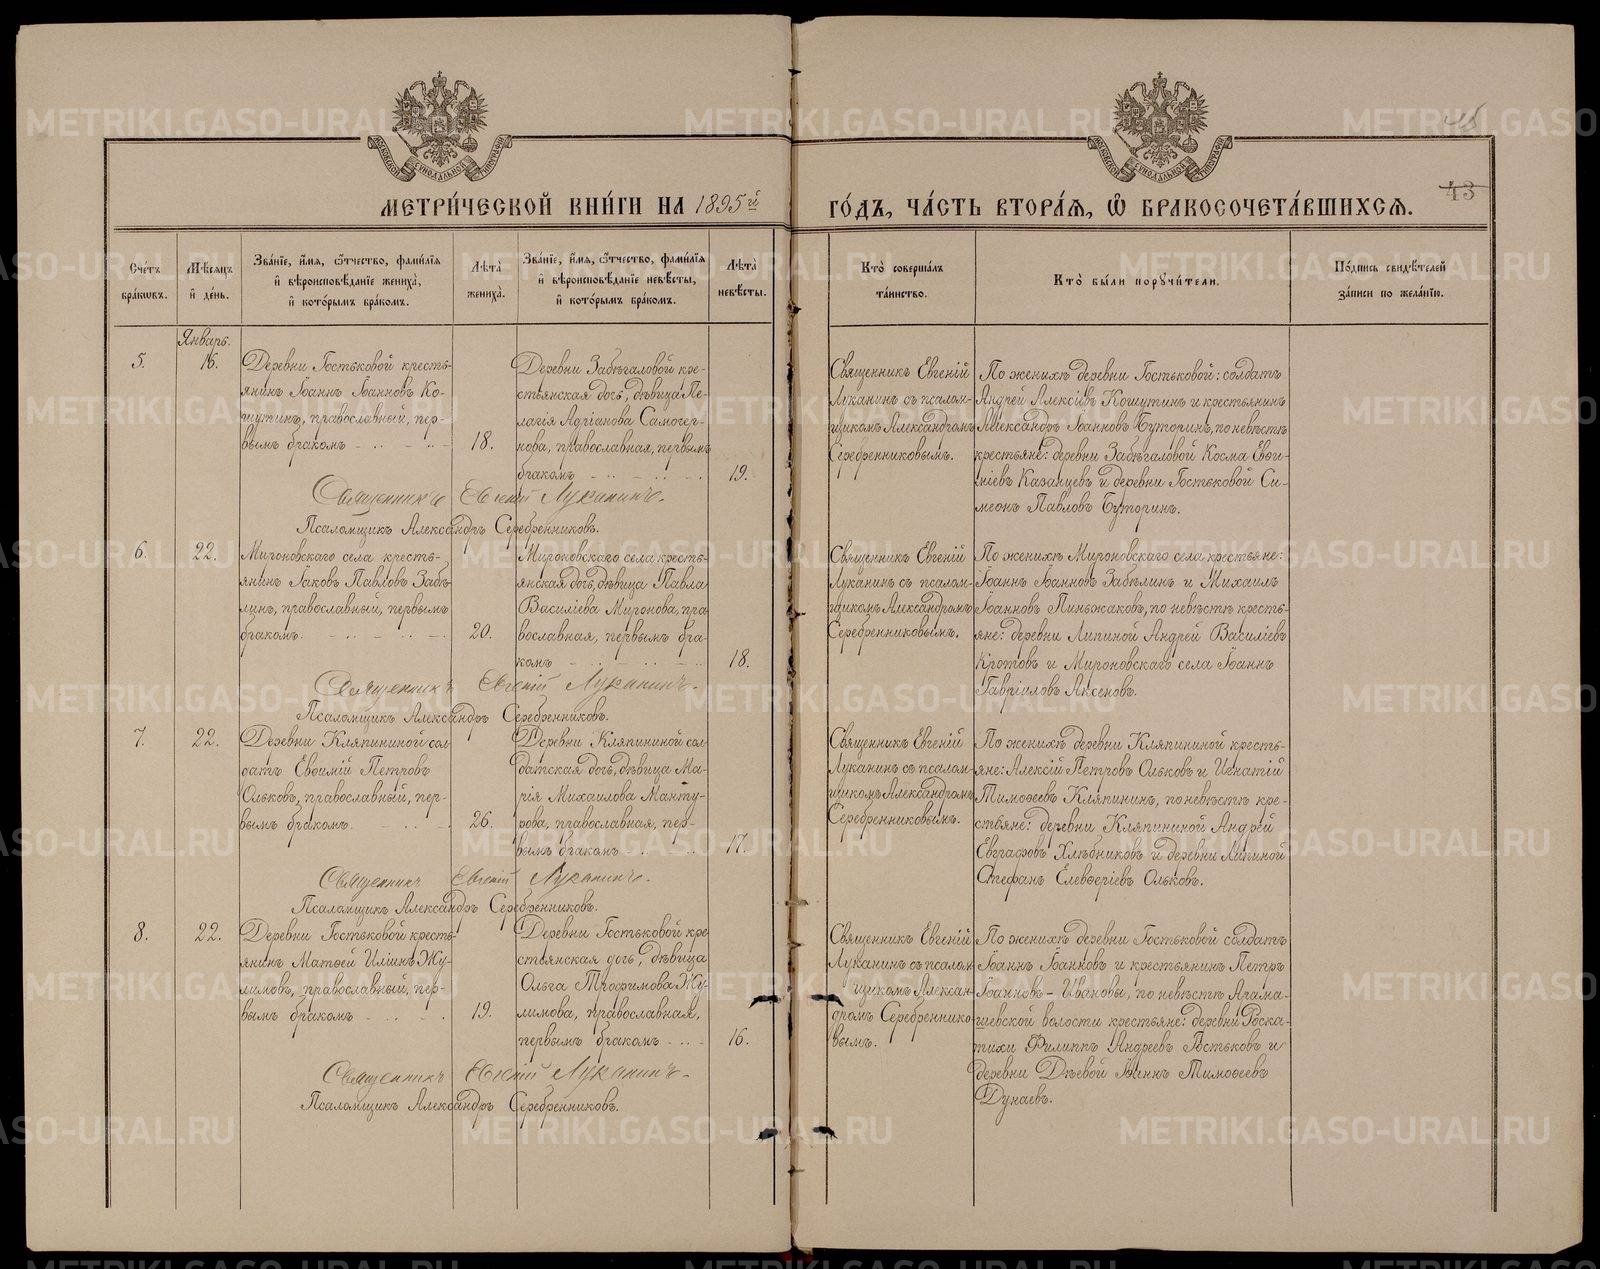 МЕТРИ́ЧЕСКОЙ КНИ́ГИ НА 1895й
ГО́ДЪ, ЧА́СТЬ ВТОРА́Я, Ѡ҆ БРАКОСОЧЕТА́ВШИХСЯ.
43
Сче́тъ бра́кѡвъ.
Мѣ́сяцъ и҆ де́нь.
Зва́нїе, и҆́мя, ѻ҆́тчество, фами́лїя и҆ вѣроисповѣ́данїе жениха̀, и҆ кото́рымъ бра́комъ.
Лѣ́та жениха̀.
Зва́нїе, и҆́мя, ѻ҆́тчество, фами́лїя и҆ вѣроисповѣ́данїе невѣ́сты, и҆ кото́рымъ бра́комъ.
Лѣ́та невѣ́сты.
Кто̀ соверша́лъ та́инство.
Кто̀ бы́ли поручи́тели.
По́дпись свидѣ́телей за́писи по жела́нїю.
Январь.
5.
16.
Деревни Гостьковой кресть-
янинъ Іоаннъ Іоанновъ Ко-
шутинъ, православный, пер-
вымъ бракомъ
18.
Деревни Забѣгаловой кре-
стьянская дочь, дѣвица Пе-
лагія Адріанова Самочер-
нова, православная, первымъ
бракомъ
19.
Священникъ Евгеній
Луканинъ съ псалом-
щикомъ Александромъ
Серебренниковымъ.
По женихѣ деревни Гостьковой: солдатъ
Андрей Алексѣевъ Кошутинъ и крестьянинъ
Александръ Іоанновъ Буторинъ, по невѣстѣ
крестьяне: деревни Забѣгаловой Косма Евге-
ніевъ Казанцевъ и деревни Гостьковой Си-
меонъ Павловъ Буторинъ.
Священникъ Евгеній Луканинъ.
Псаломщикъ Александръ Серебренниковъ.
6.
22.
Мироновскаго села кресть-
янинъ Іаковъ Павловъ Забѣ-
линъ, православный, первымъ
бракомъ.
20.
Мироновскаго села кресть-
янская дочь, дѣвица Павла
Василіева Миронова, пра-
вославная, первымъ бра-
комъ
18.
Священникъ Евгеній
Луканинъ съ псалом-
щикомъ Александромъ
Серебренниковымъ.
По женихѣ Мироновскаго села крестьяне:
Іоаннъ Іоанновъ Забѣлинъ и Михаилъ
Іоанновъ Пиньжаковъ, по невѣстѣ кресть-
яне: деревни Липиной Андрей Василіевъ
Кротовъ и Мироновскаго села Іоаннъ
Гавріиловъ Аксеновъ.
Священникъ Евгеній Луканинъ.
Псаломщикъ Александръ Серебренниковъ.
7.
22.
Деревни Кляпининой сол-
датъ Евѳимій Петровъ
Ольковъ, православный, пер-
вымъ бракомъ.
26.
Деревни Кляпининой сол-
датская дочь, дѣвица Ма-
рія Михаилова Манту-
рова, православная, пер-
вымъ бракомъ
17.
Священникъ Евгеній
Луканинъ съ псалом-
щикомъ Александромъ
Серебренниковымъ.
По женихѣ деревни Кляпининой кресть-
яне: Алексій Петровъ Ольковъ и Игнатій
Тимоѳеевъ Кляпининъ, по невѣстѣ кре-
стьяне: деревни Кляпининой Андрей
Евграфовъ Хлѣбниковъ и деревни Липиной
Стефанъ Елевѳеріевъ Ольковъ.
Священникъ Евгеній Луканинъ.
Псаломщикъ Александръ Серебренниковъ.
8.
22.
Деревни Гостьковой кресть-
янинъ Матѳей Иліинъ Жу-
лимовъ, православный, пер-
вымъ бракомъ
19.
Деревни Гостьковой кре-
стьянская дочь, дѣвица
Ольга Трофимова Жу-
лимова, православная,
первымъ бракомъ
16.
Священникъ Евгеній
Луканинъ съ псалом-
щикомъ Алексан-
дромъ Серебреннико-
вымъ.
По женихѣ деревни Гостьковой солдатъ
Іоаннъ Іоанновъ и крестьянинъ Петръ
Іоанновъ - Ивановы, по невѣстѣ Арама-
шевской волости крестьяне: деревни Роска-
тихи Филиппъ Андреевъ Гостьковъ и
деревни Дѣевой Іоаннъ Тимоѳеевъ
Дунаевъ.
Священникъ Евгеній Луканинъ.
Псаломщикъ Александръ Серебренниковъ.
METRIKI.GASO-URAL.RU